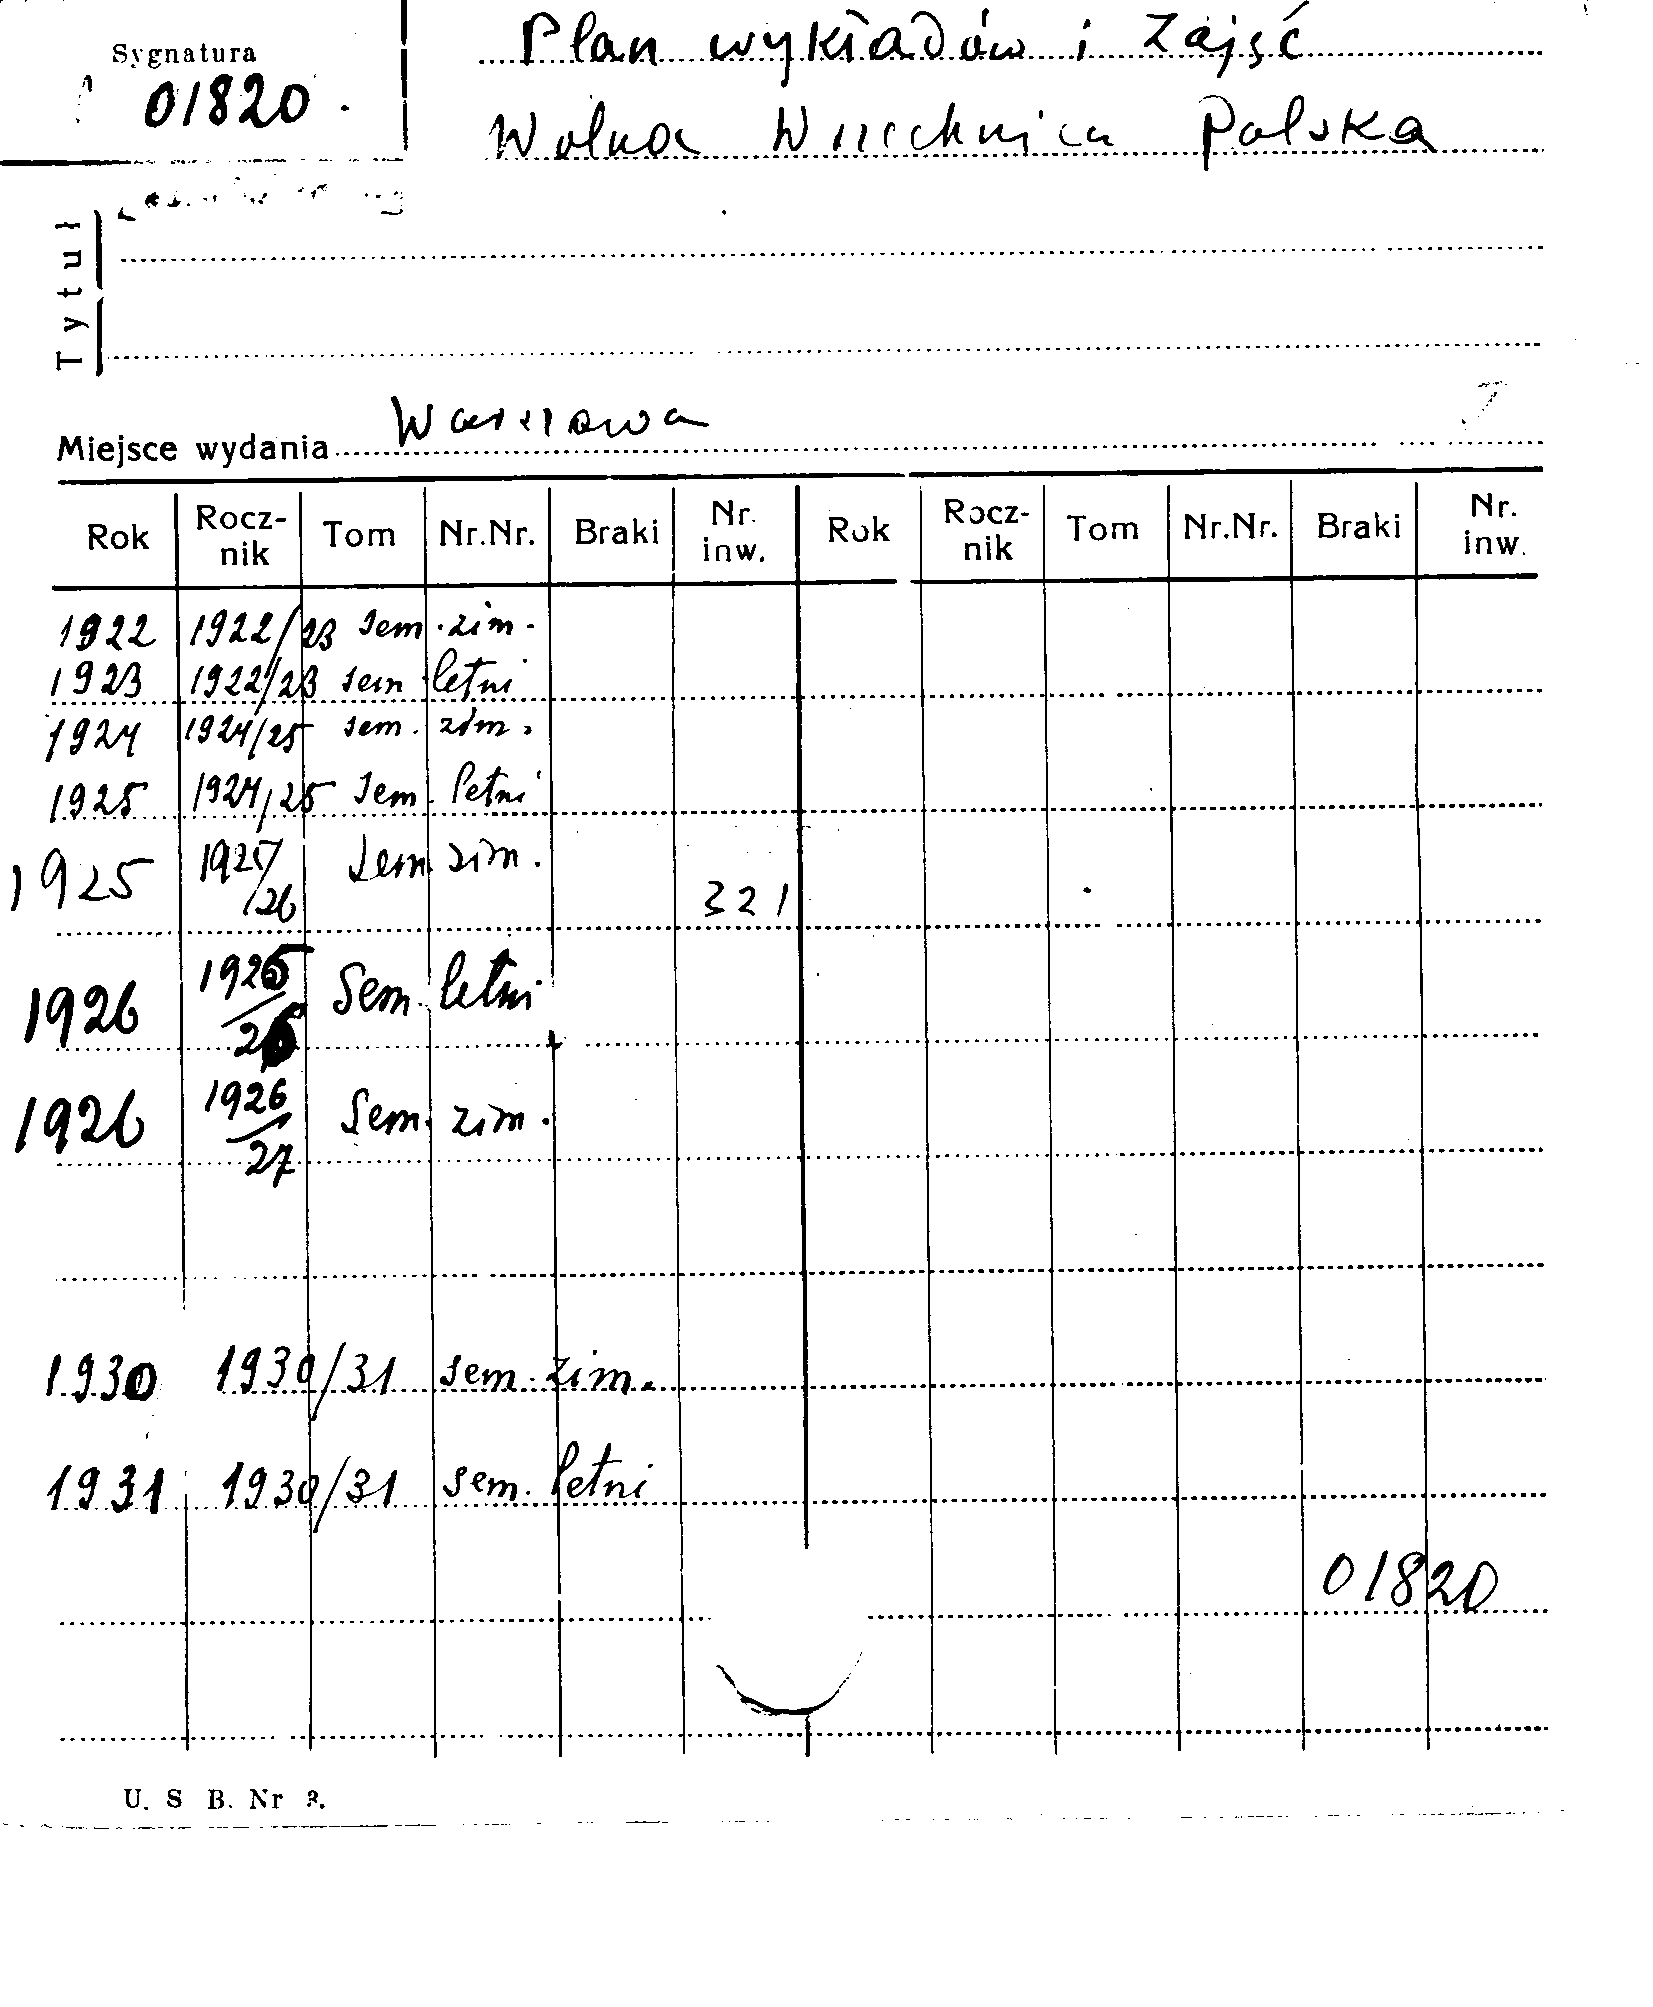 Sygnatura
01820.
Plan wykładów i zajęć
Wolna Wszechnica Polska
Tytuł
Miejsce wydania Warszawa
Rok Rocz-nik Tom Nr.Nr. Braki Nr. inw. Rok Rocz-nik Tom Nr.Nr. Braki Nr. inw.
1922 1922/23 sem. zim.
1923 1922/23 sem letni
1924 1924/25 sem. zim.
1925 1924/25 sem. letni
1925 1925/26 sem zim. 321
1926 1925/26 Sem. letni
1926 1926/27 Sem. zim.
1930 1930/31 sem. zim.
1931 1930/31 sem. letni
01820
U. S B. Nr